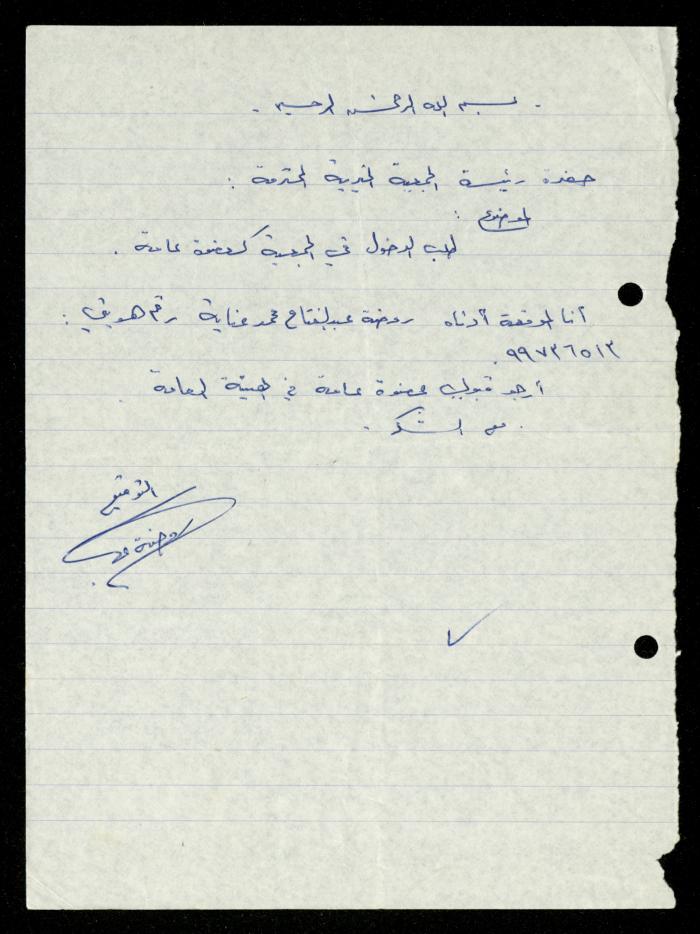 بسم الله الرحمن الرحيم .
حضرة رئيسة الجمعية الخيرية المحترمة :
الموضوع :
طلب الدخول في الجمعية كعضوة عامة .
أنا الموقعة أدناه روضة عبدالفتاح محمد عناية رقم هويتي :
٩٩٧٣٦٥١٣ .
أرجو قبولي عضوة عاملة في الهيئة العامة .
مع الشكر .
التوقيع
روضة